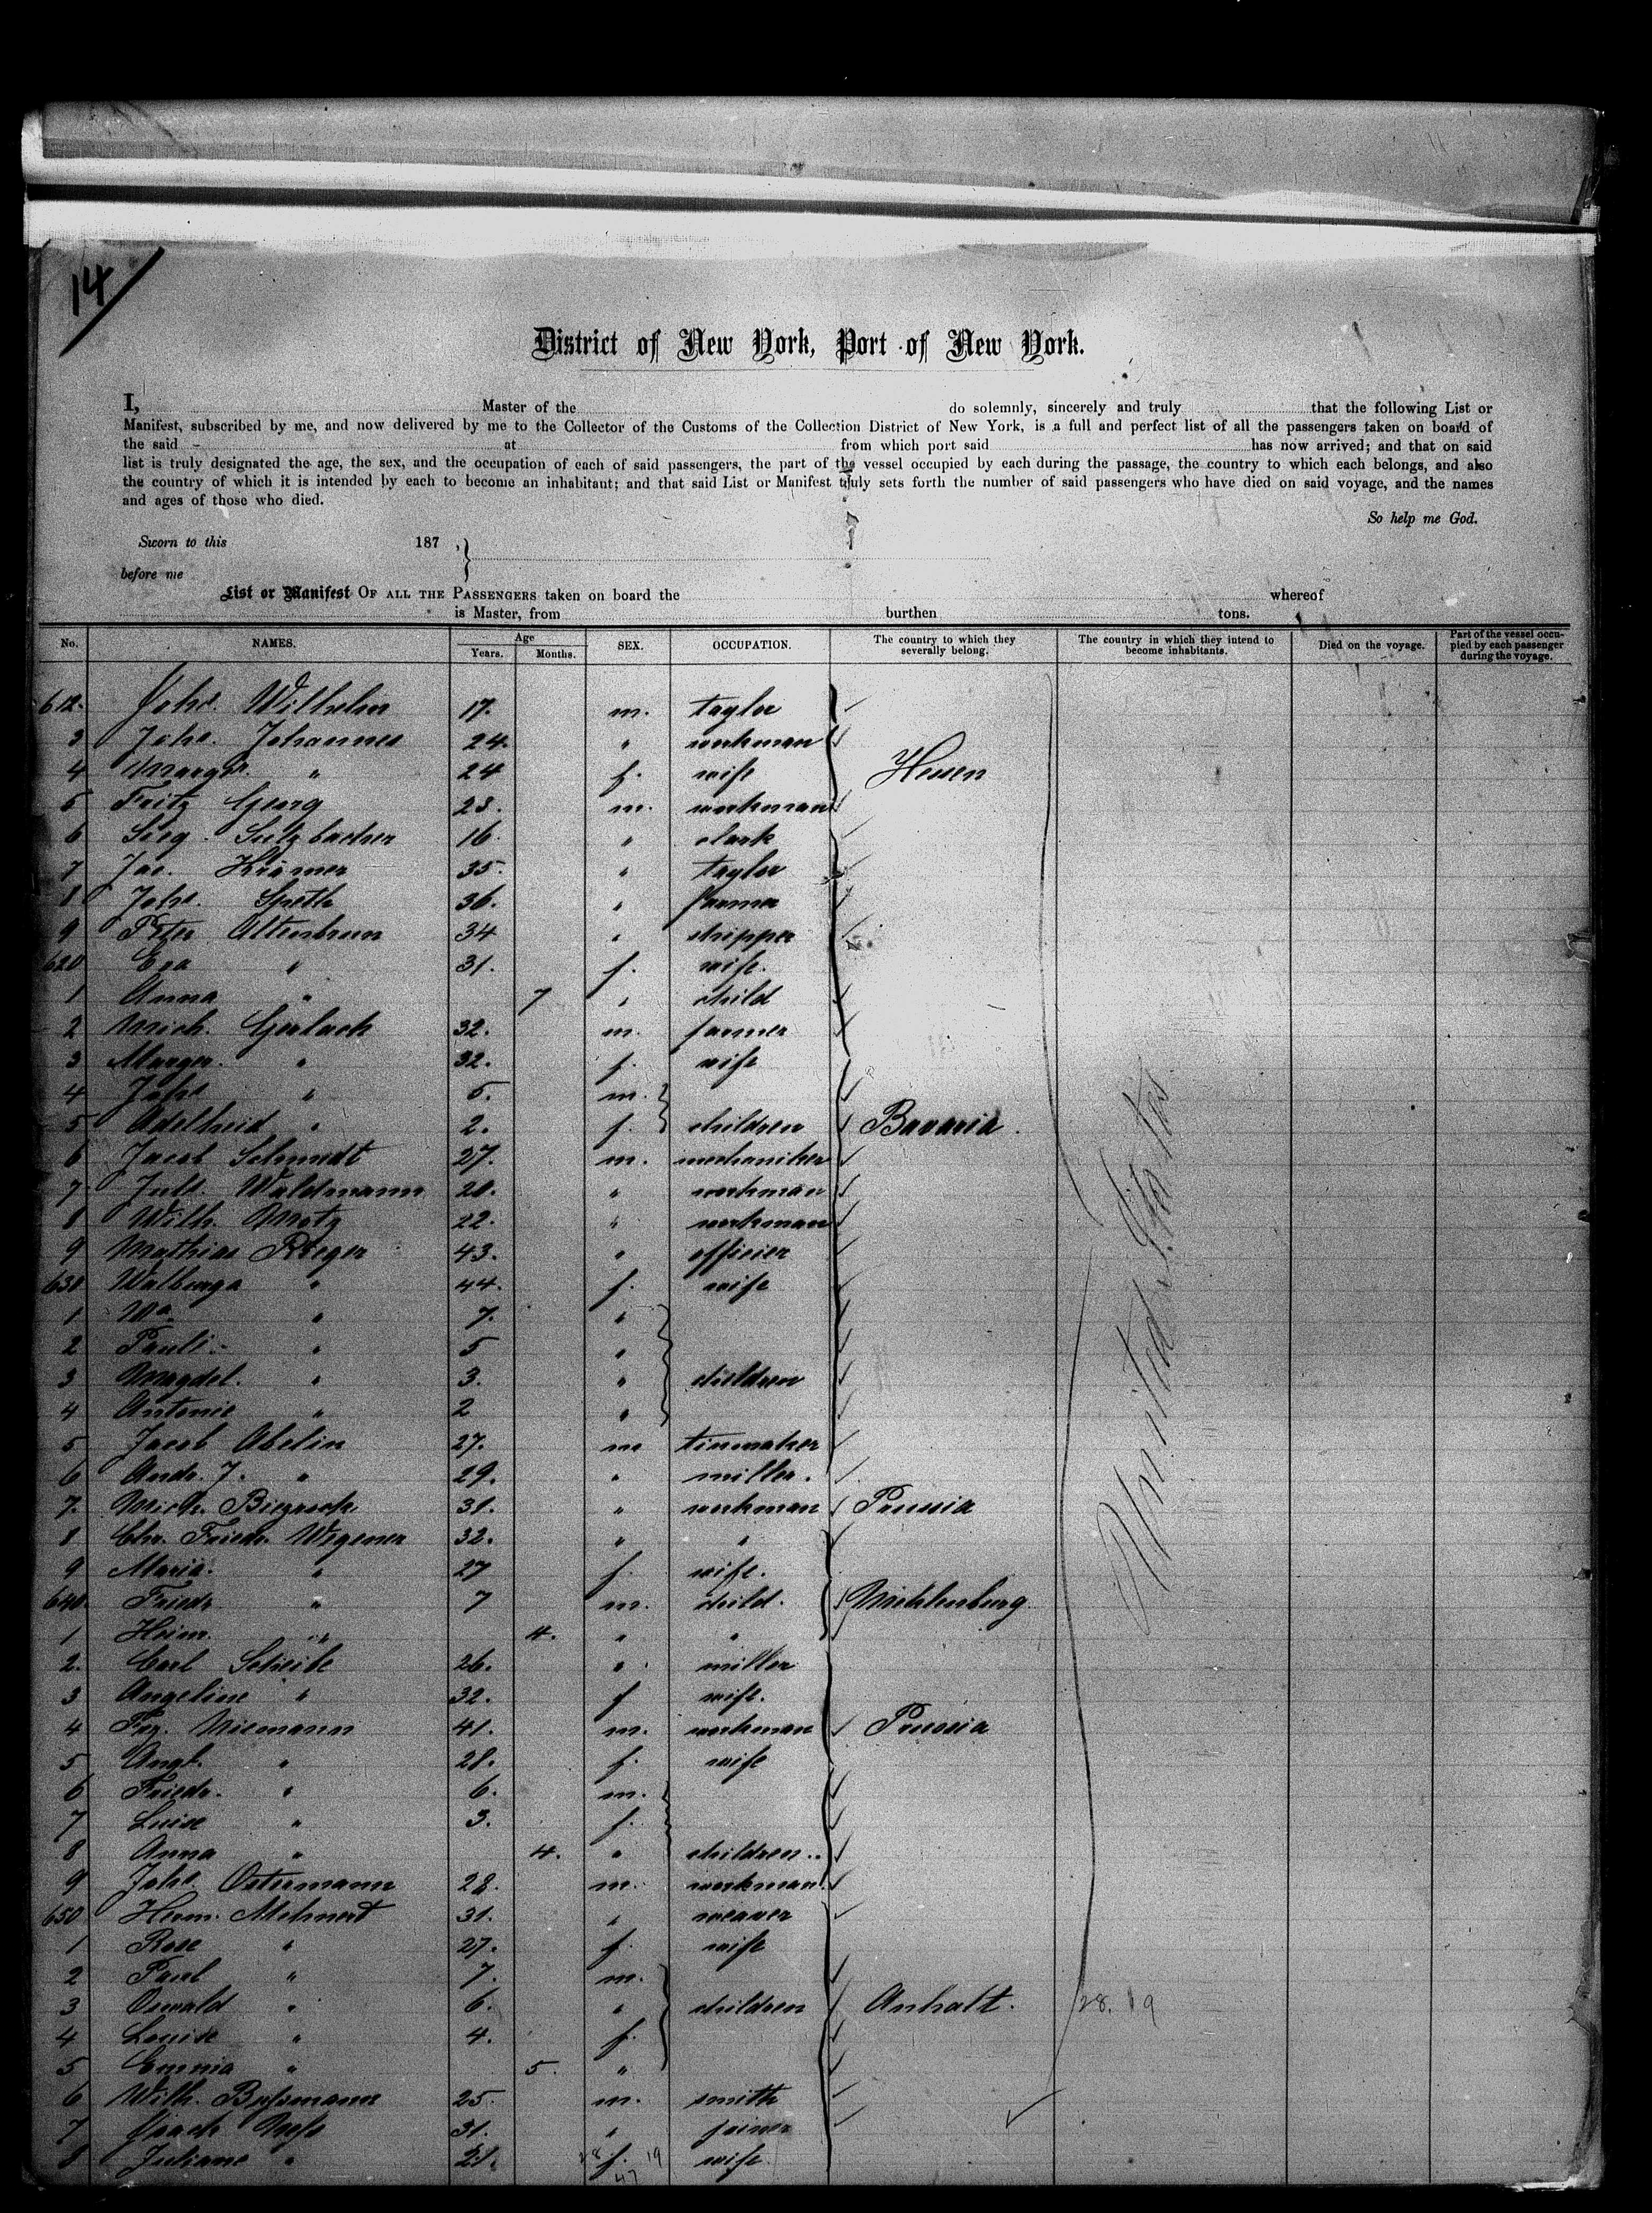 14
District of New York, Port of New York.
I, Master of the do solemnly, sincerely and truly that the following List or
Manifest, subscribed by me, and now delivered by me to the Collector of the Customs of the Collection District of New York, is a full and perfect list of all the passengers taken on board of
the said at from which port said has now arrived; and that on said
list is truly designated the age, the sex, and the occupation of each of said passengers, the part of the vessel occupied by each during the passage, the country to which each belongs, and also
the country of which it is intended by each to become an inhabitant; and that said List or Manifest truly sets forth the number of said passengers who have died on said voyage, and the names
and ages of those who died.
So help me God.
Sworn to this 187 ,}
before me
List or Manifest OF ALL THE PASSENGERS taken on board the whereof
is Master, from burthen tons.
No. NAMES. Age Years. Months. SEX. OCCUPATION. The country to which they severally belong. The country in which they intend to become inhabitants. Died on the voyage. Part of the vessel occupied by each passenger during the voyage.
612. Johs. Wilhelm 17. m. taylor
3 Johs. Johannes 24. " workman
4 Margr. " 24 f. wife Hessen
5 Fritz Georg 23. m. workman
6 Sieg. Sulzbacher 16. " clark
7 Jac. Krämer 35. " taylor
8 Johs. Speth 36. " farmer
9 Peter Altenbrun 34 " shipper
620 Eva " 31. f. wife.
1 Anna " 7 " child
2 Mich. Gerlach 32. m. farmer
3 Margr. " 32. f. wife
4 Johs " 5. m.
5 Adelheid " 2. f. children Bavaria.
6 Jacob Schmidt 27. m. mechaniker
7 Juls. Waldmann 20. " workman
8 Wilh. Motz 22. " workman
9 Mathias Rieger 43. " officier
630 Walburga " 44. f. wife
1 Wa " 7. "
2 Pauli. " 5 "
3 Magdel. " 3. " children
4 Antonie " 2 "
5 Jacob Abelin 27. m tinmaker
6 Andr. J. " 29. " miller.
7. Mich. 31. " workman Prussia
8 Chr. Friedr. Wegener 32. " "
9 Maria. " 27 f. wife.
640 Friedr " 7 m. child. Mecklenburg
1 Heinr. " 4. " "
2. Carl Scheibe 26. " miller
3 Angeline " 32. f wife.
4 Niemann 41. m. workman Prussia
5 Angl. " 28. f. wife
6 Friedr. " 6. m.
7 Luise " 3. f.
8 Anna " 4. " children..
9 Johs. Ostermann 28. m. workman.
650 Herm. Mehnert 31. " weaver
1 Rose " 27. f. wife
2 Paul " 7. m.
3 Oswald " 6. " children Anhalt. 28. 19
4 Louise " 4. f.
5 Emma " 5. "
6 Wilh. Bussmann 25. m. smith
7 31. " joiner
8 Juliane " 21. f. wife
28 19
47
United States.